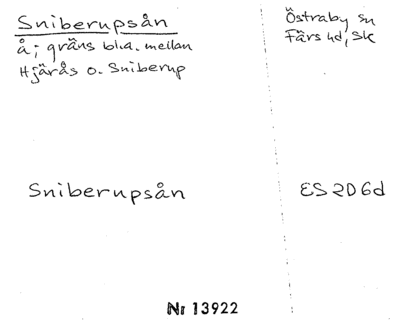 Sniberupsån
å; gräns bl.a. mellan
Hjärås o. Sniberup
Östraby sn
Färs hd, Sk
Sniberupsån
ES 2D6d
Nr 13922